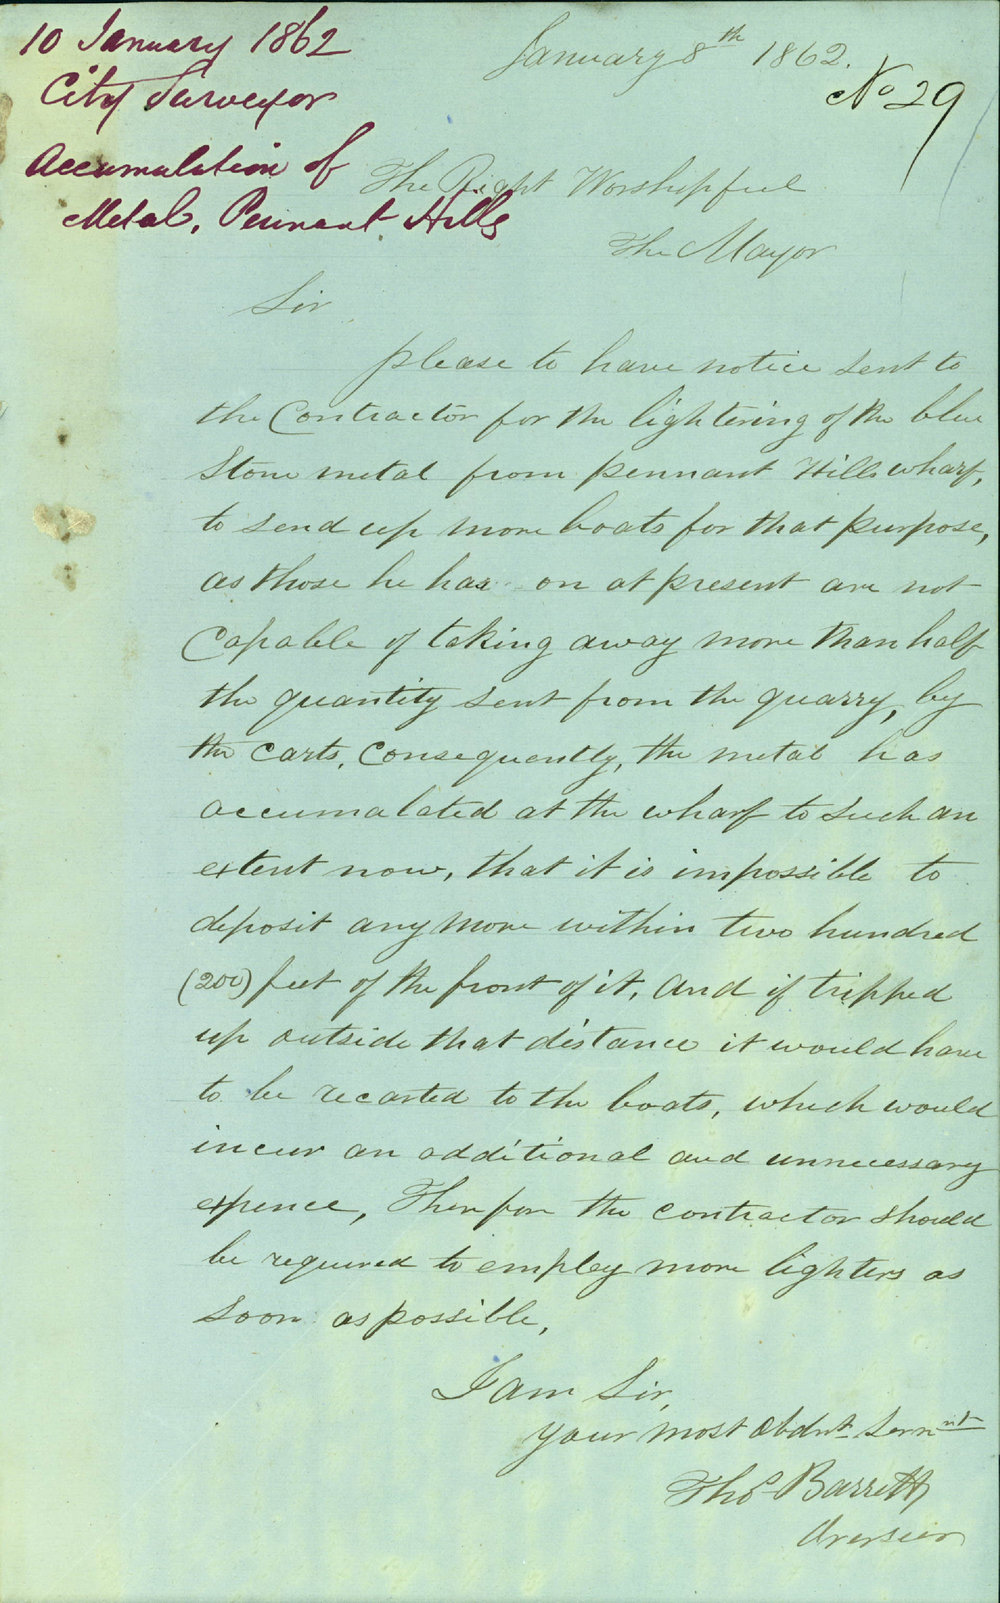 10 January 1862
City Surveyor
Accumulation of
Metal, Pennant Hills
January 8th 1862.
No 29
The Right Worshipful
The Mayor
Sir
please to have notice sent to
the Contractor for the lightering of the blue
Stone metal from pennant Hills wharf,
to send up more boats for that purpose,
as those he has on at present are not
Capable of taking away more than half
the quantity sent from the quarry, by
the carts, Consequently, the metal has
accumalated at the wharf to such an
extent now, that it is impossible to
deposit any more within two hundred
(200) feet of the front of it, and if tripped
up outside that distance it would have
to be recarted to the boats, which would
incur an additional and unnecessary
expence, Therefore the contractor should
be required to employ more lighters as
soon as possible,
I am Sir,
your most Obdnt Servnt
Thos Barrett
Overseer